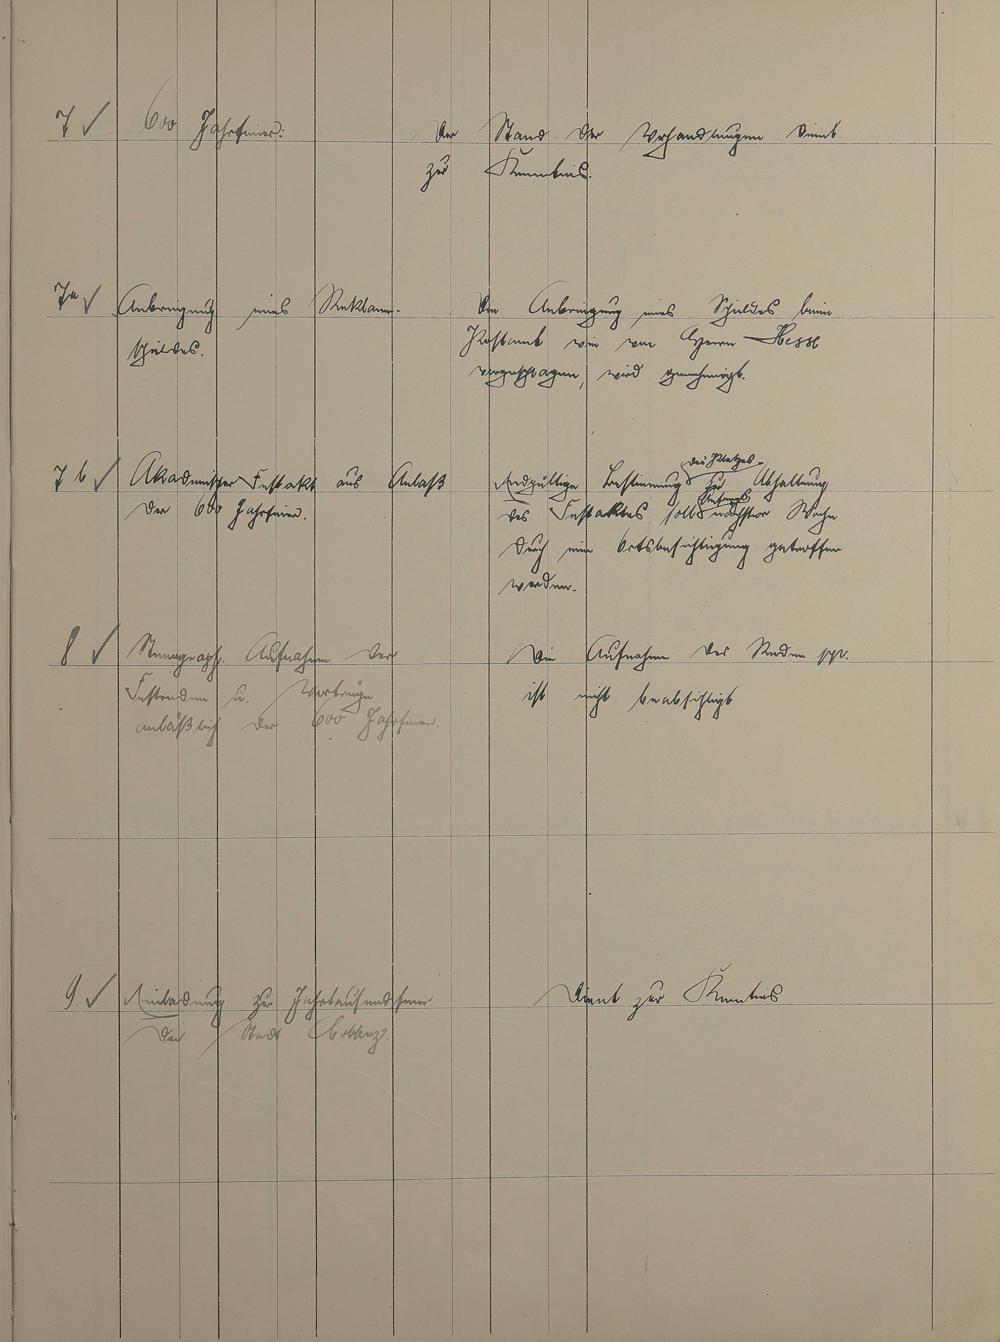 7 ✓ 600 Jahrfeier. Der Stand der Verhandlungen dient
zur Kenntnis.
7a ✓ Anbringung eines Reklame- Die Anbringung eines Schildes beim
schildes. Postamt wie von Herrn Hesse
vorgeschlagen, wird genehmigt.
des Platzes
7b ✓ Akademischer Festakt aus Anlaß Endgültige Bestimmung zur Abhaltung
Anfangs
der 600 Jahrfeier. des Festaktes soll nächster Woche
durch eine Ortsbesichtigung getroffen
werden.
8 ✓ Stenograph. Aufnahme der Die Aufnahme der Reden pp.
Festreden u. Vorträge ist nicht beabsichtigt
anläßlich der 600 Jahrfeier.
9. ✓ Einladung zur Jahrtausendfeier Dient zur Kenntnis
der Stadt Coblenz.